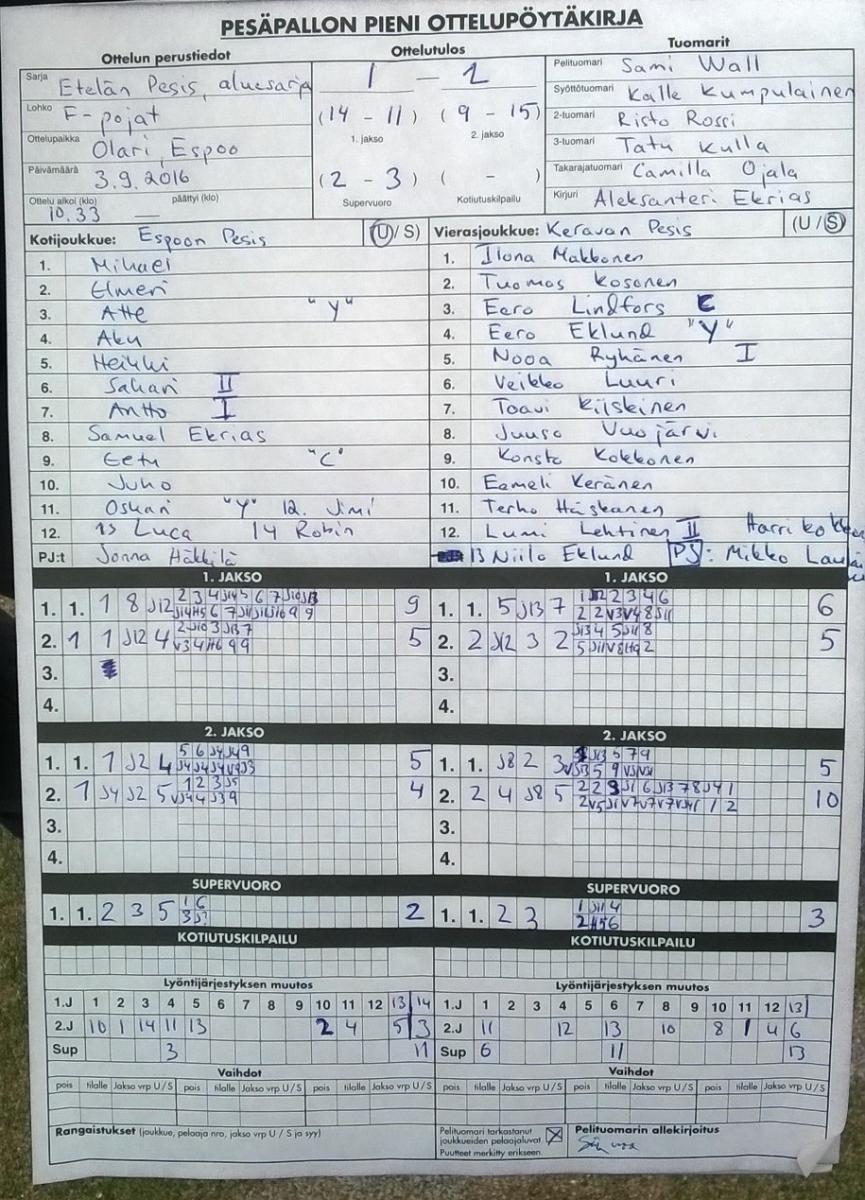 PESÄPALLON PIENI OTTELUPÖYTÄKIRJA
Ottelun perustiedot Ottelutulos Tuomarit
Sarja Etelän Pesis, aluesarja
Lohko F-pojat
Ottelupaikka Olari, Espoo
Päivämäärä 3.9.2016
Ottelu alkoi (klo) päättyi (klo)
10.33 —
1 — 2
(14 - 11) (9 - 15)
1. jakso 2. jakso
(2 - 3) ( - )
Supervuoro Kotiutuskilpailu
Pelituomari Sami Wall
Syöttötuomari Kalle Kumpulainen
2-tuomari Risto Rossi
3-tuomari Tatu Kulla
Takarajatuomari Camilla Ojala
Kirjuri Aleksanteri Ekrias
Kotijoukkue: Espoon Pesis (U/S)
1. Mikael
2. Elmeri
3. Atte "Y"
4. Aku
5. Heikki
6. Sakari II
7. Antto I
8. Samuel Ekrias
9. Eetu "C"
10. Juho
11. Oskari "Y" 12. Jimi
12. 13 Luca 14 Robin
PJ:t Jonna Häkkilä
Vierasjoukkue: Keravan Pesis (U/S)
1. Ilona Makkonen
2. Tuomas Kosonen
3. Eero Lindfors C
4. Eero Eklund "Y"
5. Nooa Ryhänen I
6. Veikko Luuri
7. Toavi Kiiskinen
8. Juuso Vuojärvi
9. Konsta Kokkonen
10. Eemeli Keränen
11. Terho Häskanen
12. Lumi Lehtinen II Harri
13 Niilo Eklund PJ: Mikko
1. JAKSO
1. 1. 1 8 J12 9
2. 1 1 J12 4 5
3.
4.
1. JAKSO
1. 1. 5 J13 7 6
2. 2 J12 3 2 5
3.
4.
2. JAKSO
1. 1. 1 J2 4 5
2. 1 J4 J2 5 4
3.
4.
2. JAKSO
1. 1. J8 2 3 5
2. 2 4 J8 5 10
3.
4.
SUPERVUORO
1. 1. 2 3 5 2
SUPERVUORO
1. 1. 2 3 3
KOTIUTUSKILPAILU
KOTIUTUSKILPAILU
Lyöntijärjestyksen muutos
1.J 1 2 3 4 5 6 7 8 9 10 11 12 13 14
2.J 10 1 14 11 13 2 4 5 3
Sup 3 11
Lyöntijärjestyksen muutos
1.J 1 2 3 4 5 6 7 8 9 10 11 12 13
2.J 11 12 13 10 8 1 4 6
Sup 6 11 13
Vaihdot
pois tilalle Jakso vrp U/S pois tilalle Jakso vrp U/S pois tilalle Jakso vrp U/S
Vaihdot
pois tilalle Jakso vrp U/S pois tilalle Jakso vrp U/S pois tilalle Jakso vrp U/S
Rangaistukset (joukkue, pelaaja nro, jakso vrp U / S ja syy)
Pelituomari tarkastanut
joukkueiden pelaajaluvat.
Puutteet merkitty erikseen.
Pelituomarin allekirjoitus